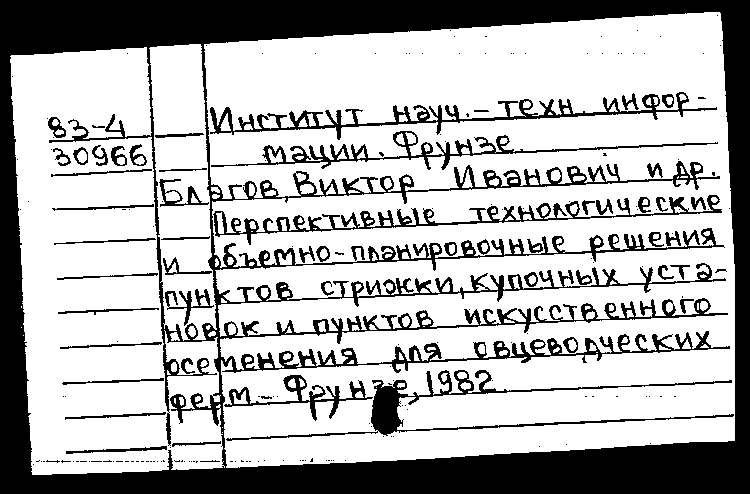 83-4 Институт науч.-техн. инфор-
30966 мации. Фрунзе.
Благов, Виктор Иванович и др.
Перспективные технологические
и объемно-планировочные решения
пунктов стрижки, купочных уста-
новок и пунктов искусственного
осеменения для овцеводческих
ферм.- Фрунзе, 1982.